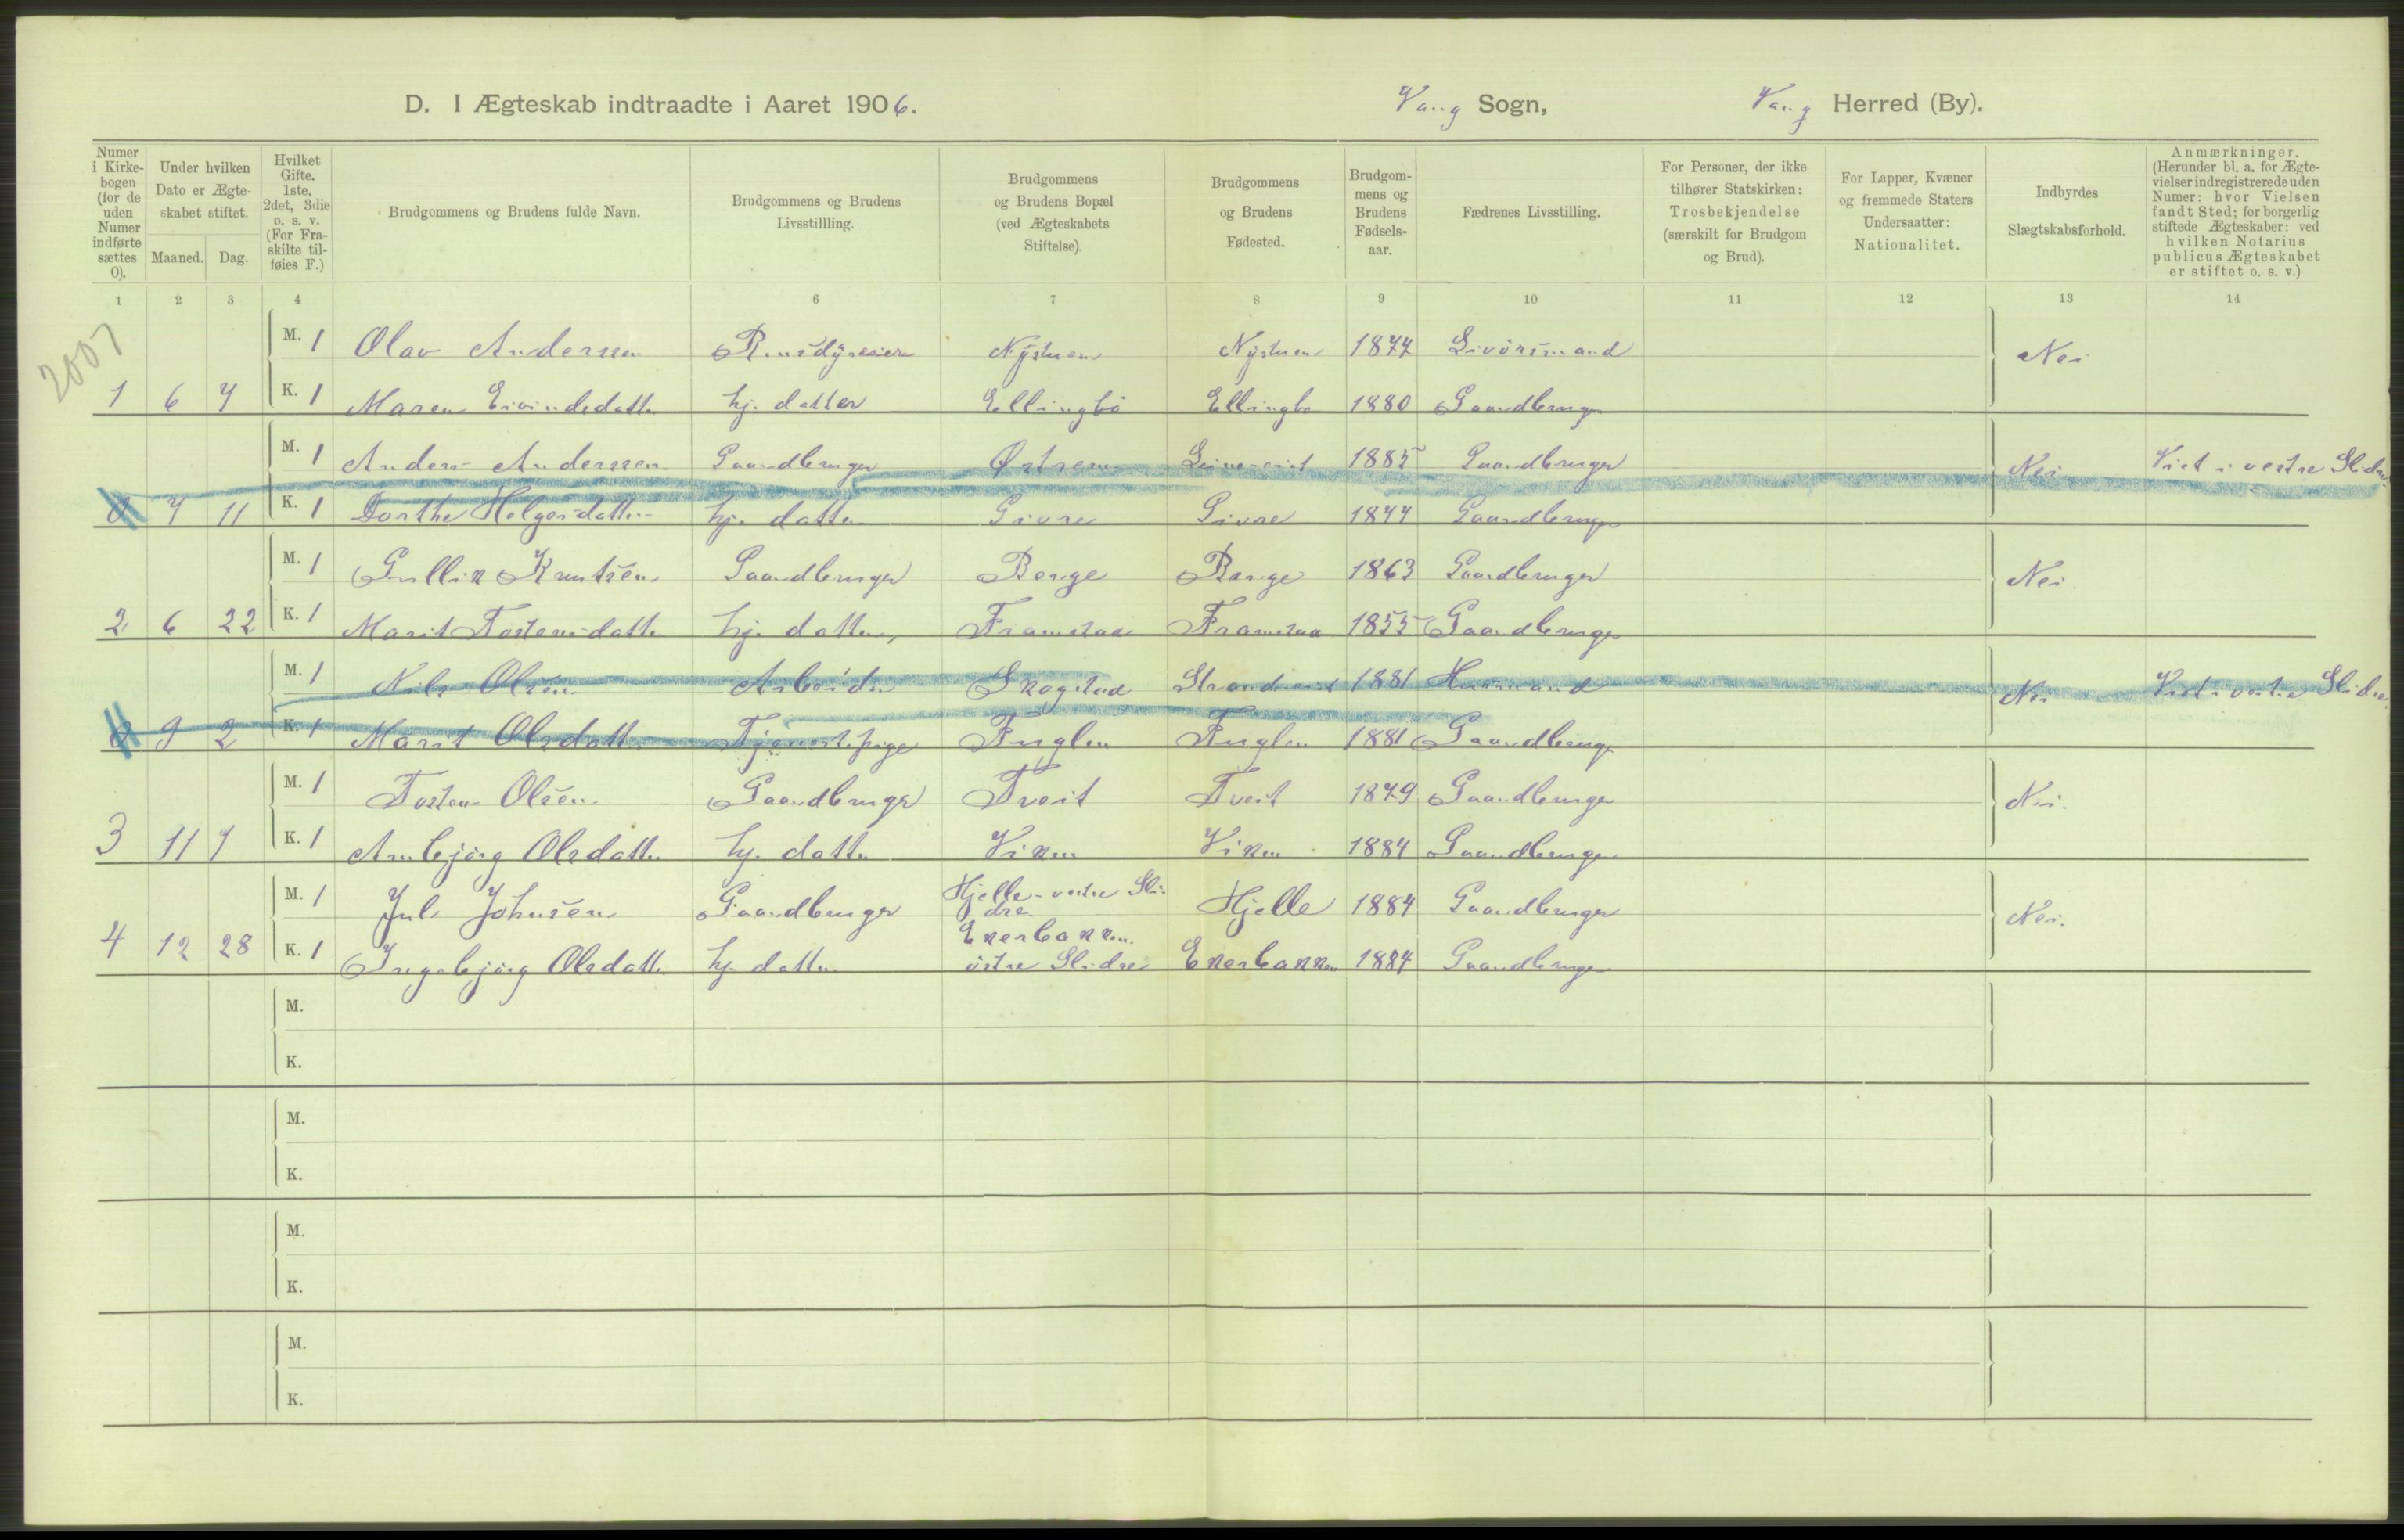 D. I Ægteskab indtraadte i Aaret 1906. Vang Sogn, Vang Herred (By).
Numer i Kirke-bogen (for de uden Numer indførte sættes 0). Under hvilken Dato er Ægte-skabet stiftet. Maaned. Dag. Hvilket Gifte. 1ste, 2det, 3die o. s. v. (For Fra-skilte til-føies F.) Brudgommens og Brudens fulde Navn. Brudgommens og Brudens Livsstillling. Brudgommens og Brudens Bopæl (ved Ægteskabets Stiftelse). Brudgommens og Brudens Fødested. Brudgom-mens og Brudens Fødsels-aar. Fædrenes Livsstilling. For Personer, der ikke tilhører Statskirken: Trosbekjendelse (særskilt for Brudgom og Brud). For Lapper, Kvæner og fremmede Staters Undersaatter: Nationalitet. Indbyrdes Slægtskabsforhold. Anmærkninger. (Herunder bl. a. for Ægte-vielser indregistrerede uden Numer: hvor Vielsen fandt Sted; for borgerlig stiftede Ægteskaber: ved hvilken Notarius publicus Ægteskabet er stiftet o. s. v.)
1 2 3 4 6 7 8 9 10 11 12 13 14
2007
M. 1 Olav Anderssen Rensdyreier Nystuen Nystuen 1877 Nei
1 6 7 K. 1 Maren Eivindsdatter hj. datter Ellingbö Ellingbø 1880 Gaardbruger
M. 1 Anders Anderssen Gaardbruger Östrem 1885 Gaardbruger Nei Viet i vestre Slidre
0 7 11 K. 1 Dorthe Helgesdatter hj. datter Givre Givre 1877 Gaardbruger
M. 1 Gullik Knutsen Gaardbruger Berge Berge 1863 Gaardbruger Nei.
2 6 22 K. 1 Marit Tostensdatter hj. datter, Framstaa Framstaa 1855 Gaardbruger
M. 1 Nils Olsen Arbeider Skogstad 1881 Husmand Nei Viet i vestre Slidre.
0 9 2 K. 1 Marit Olsdatter Tjenestepige Fuglen Fuglen 1881 Gaardbruger
M. 1 Tosten Olsen Gaardbruger Tveit Tveit 1879 Gaardbruger Nei.
3 11 7 K. 1 Anbjörg Olsdatter hj. datter Viken Viken 1884 Gaardbruger
M. 1 Jul Johnsen Gaardbruger Hjelle - vestre Sli-dre. Hjelle 1884 Gaardbruger Nei.
4 12 28 K. 1 Ingebjörg Olsdatter hj. datter Ekerbakken. östre Slidre Ekerbakken 1884 Gaardbruger
M.
K.
M.
K.
M.
K.
M.
K.